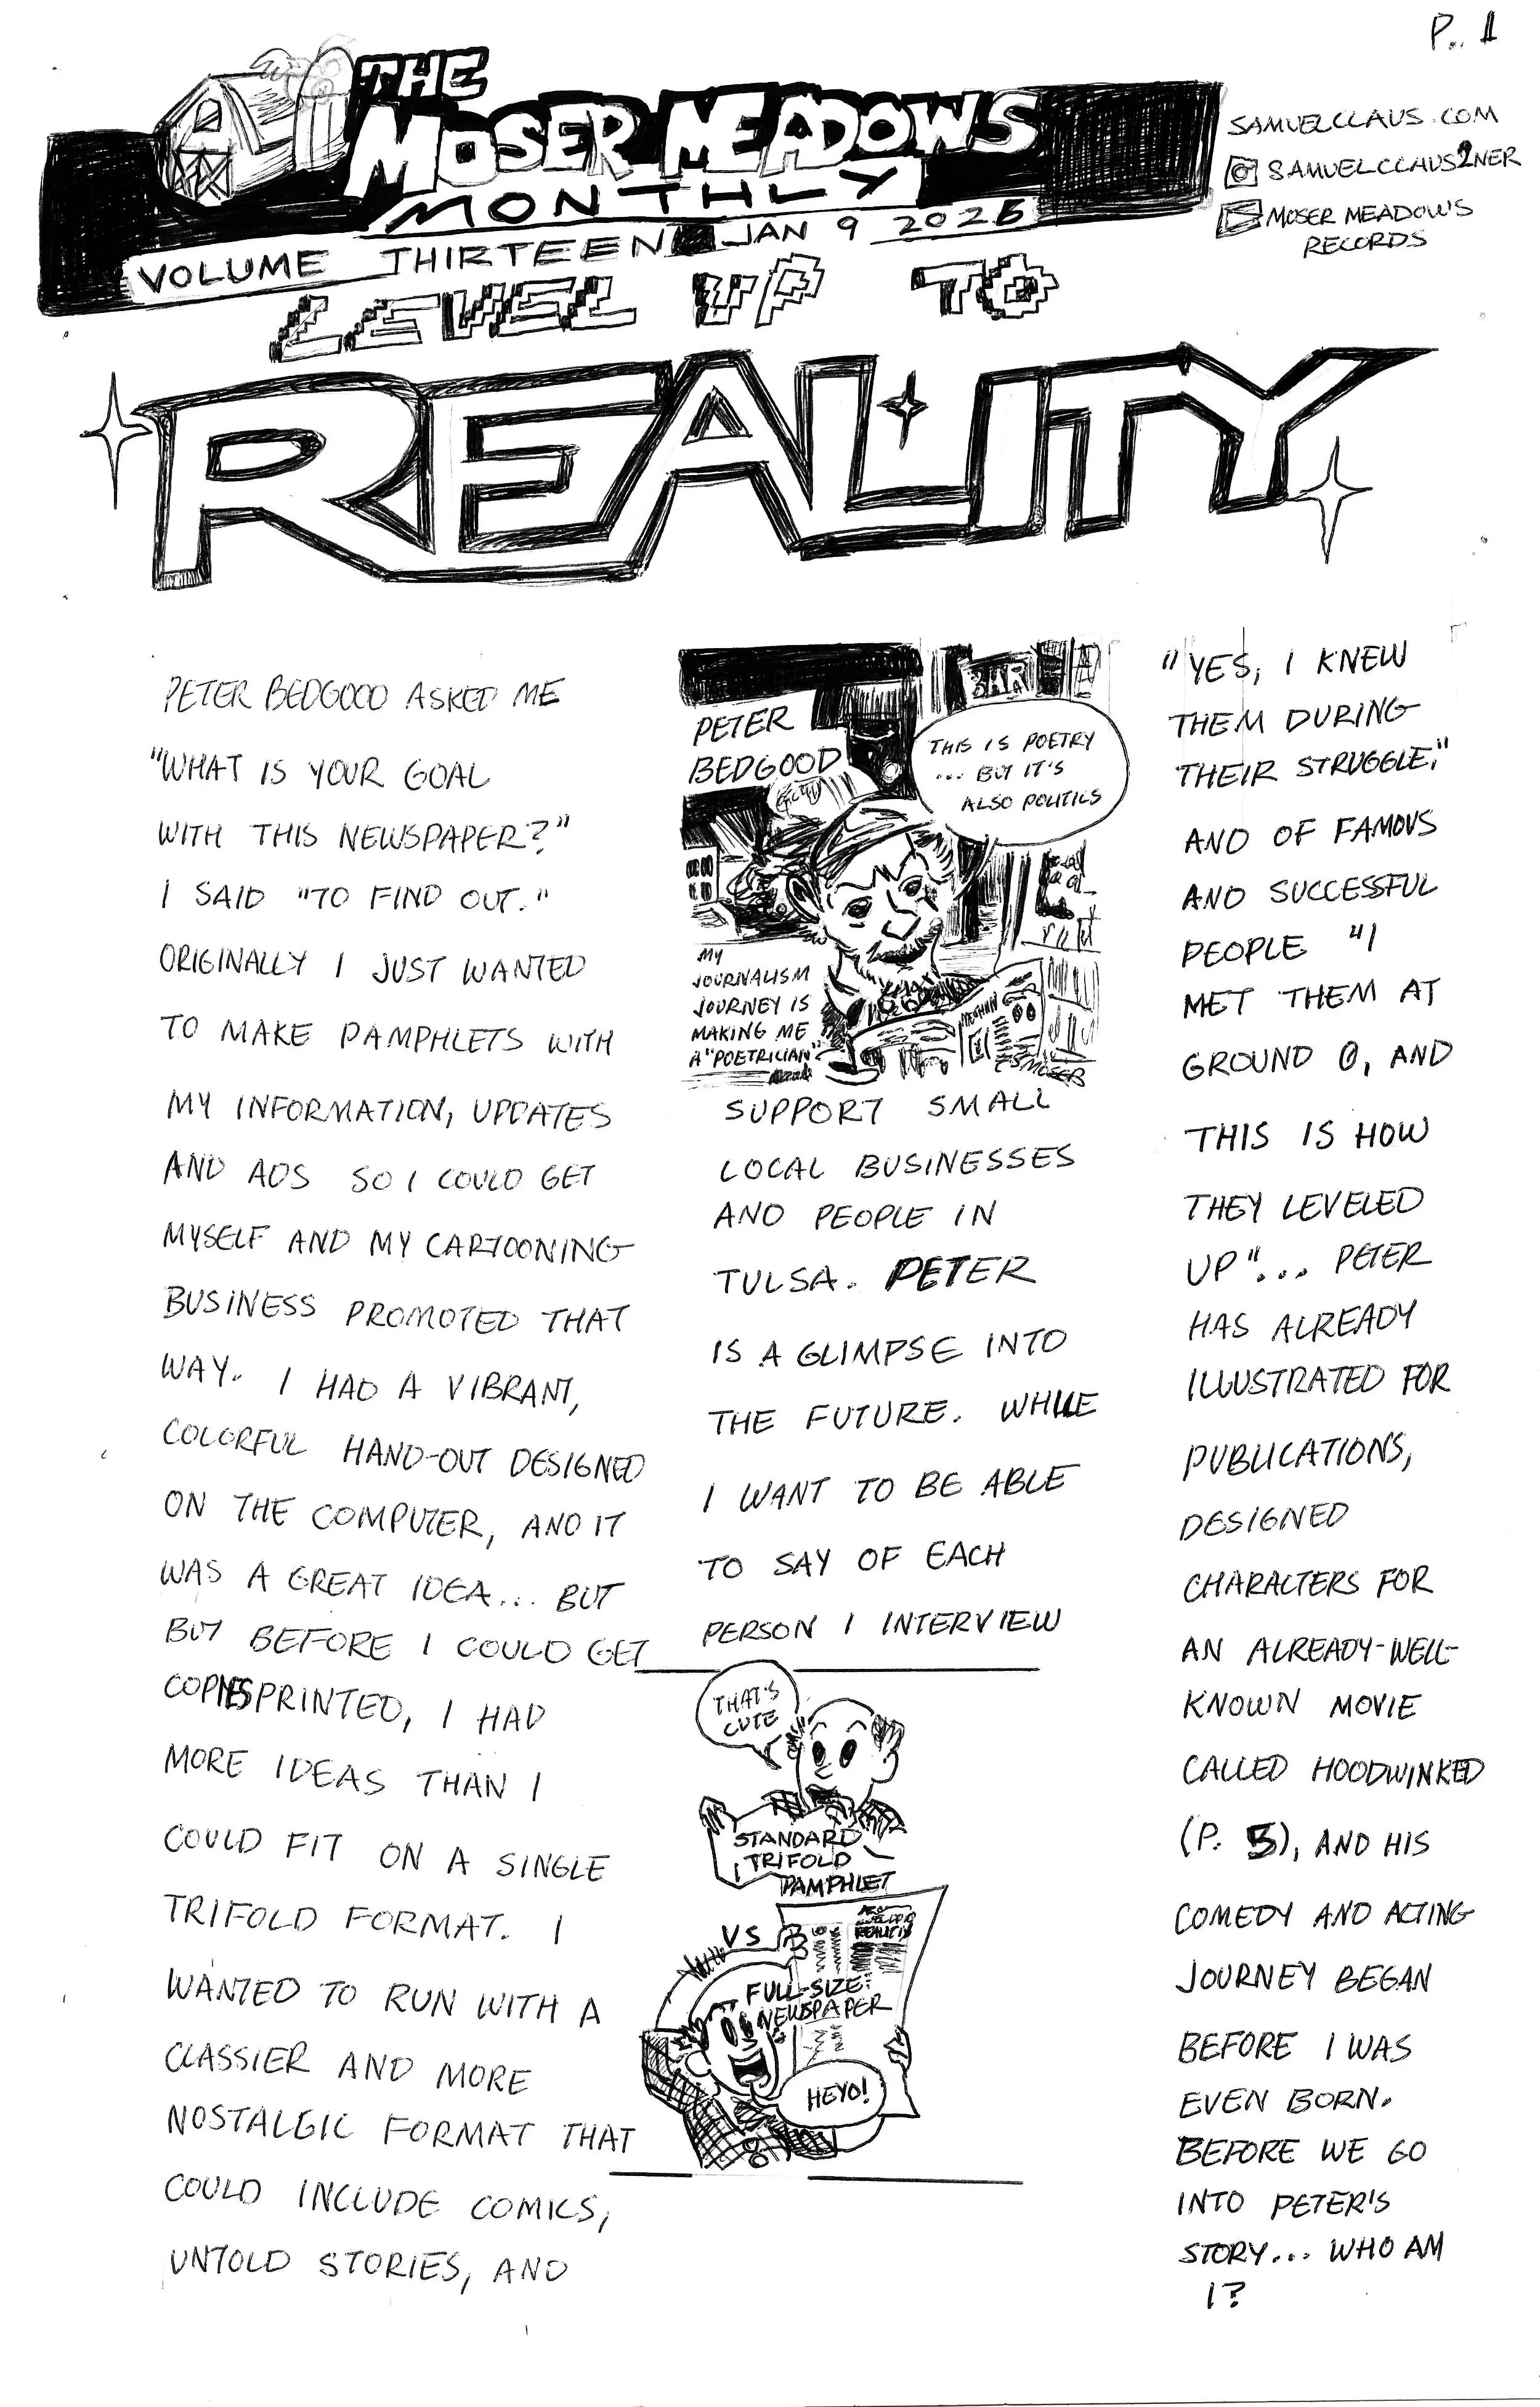 P. 1
THE
MOSER MEADOWS
MONTHLY
VOLUME THIRTEEN JAN 9 2026
SAMUELCCLAUS.COM
SAMUELCCLAUS2NER
MOSER MEADOWS
RECORDS
LEVEL UP TO
REALITY
PETER BEDGOOD ASKED ME
"WHAT IS YOUR GOAL
WITH THIS NEWSPAPER?"
I SAID "TO FIND OUT."
ORIGINALLY I JUST WANTED
TO MAKE PAMPHLETS WITH
MY INFORMATION, UPDATES
AND ADS SO I COULD GET
MYSELF AND MY CARTOONING
BUSINESS PROMOTED THAT
WAY. I HAD A VIBRANT,
COLORFUL HAND-OUT DESIGNED
ON THE COMPUTER, AND IT
WAS A GREAT IDEA... BUT
BUT BEFORE I COULD GET
COPIES PRINTED, I HAD
MORE IDEAS THAN I
COULD FIT ON A SINGLE
TRIFOLD FORMAT. I
WANTED TO RUN WITH A
CLASSIER AND MORE
NOSTALGIC FORMAT THAT
COULD INCLUDE COMICS,
UNTOLD STORIES, AND
BAR
PETER
BEDGOOD
THIS IS POETRY
... BUT IT'S
ALSO POLITICS
MY
JOURNALISM
JOURNEY IS
MAKING ME
A "POETRICIAN"
MEGHAN
MOSER
SUPPORT SMALL
LOCAL BUSINESSES
AND PEOPLE IN
TULSA. PETER
IS A GLIMPSE INTO
THE FUTURE. WHILE
I WANT TO BE ABLE
TO SAY OF EACH
PERSON I INTERVIEW
THAT'S
CUTE
STANDARD
TRIFOLD
PAMPHLET
VS
REALITY
FULL-SIZE
NEWSPAPER
HEYO!
"YES, I KNEW
THEM DURING
THEIR STRUGGLE,"
AND OF FAMOUS
AND SUCCESSFUL
PEOPLE "I
MET THEM AT
GROUND 0, AND
THIS IS HOW
THEY LEVELED
UP"... PETER
HAS ALREADY
ILLUSTRATED FOR
PUBLICATIONS,
DESIGNED
CHARACTERS FOR
AN ALREADY-WELL-
KNOWN MOVIE
CALLED HOODWINKED
(P. 5), AND HIS
COMEDY AND ACTING
JOURNEY BEGAN
BEFORE I WAS
EVEN BORN.
BEFORE WE GO
INTO PETER'S
STORY... WHO AM
I?